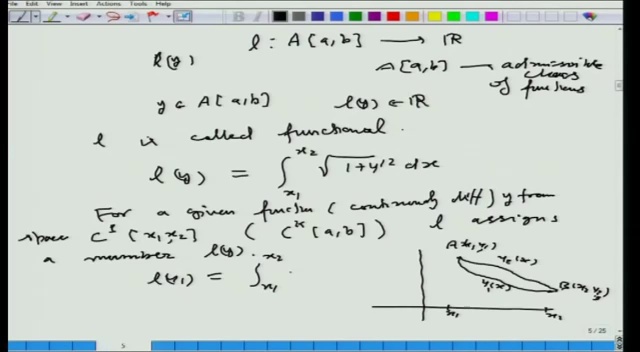 l : A[a,b] → ℝ
l(y) A[a,b] — admissible class of functions
y ∈ A[a,b] l(y) ∈ ℝ
l is called functional.
l(y) = ∫_{x₁}^{x₂} √(1+y'²) dx
For a given function (continuously diff) y from
space C¹[x₁,x₂] ( [a,b]) l assigns
a number l(y).
l(y₁) = ∫_{x₁}^{x₂}
A(x₁,y₁)
y₂(x)
y₁(x)
B(x₂,y₂)
x₁ x₂
5 / 25
5